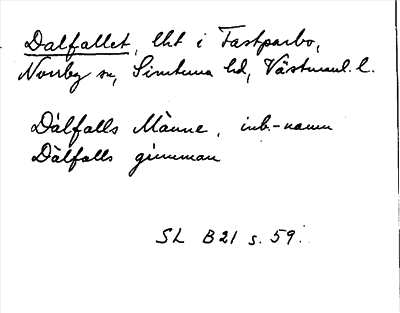 Dalfallet, lht i Fastparbo,
Norrby sn, Simtuna hd, Västmanl. l.
Dalfalls Männe, inb.-namn
Dalfalls gumman
SL B21 s. 59.